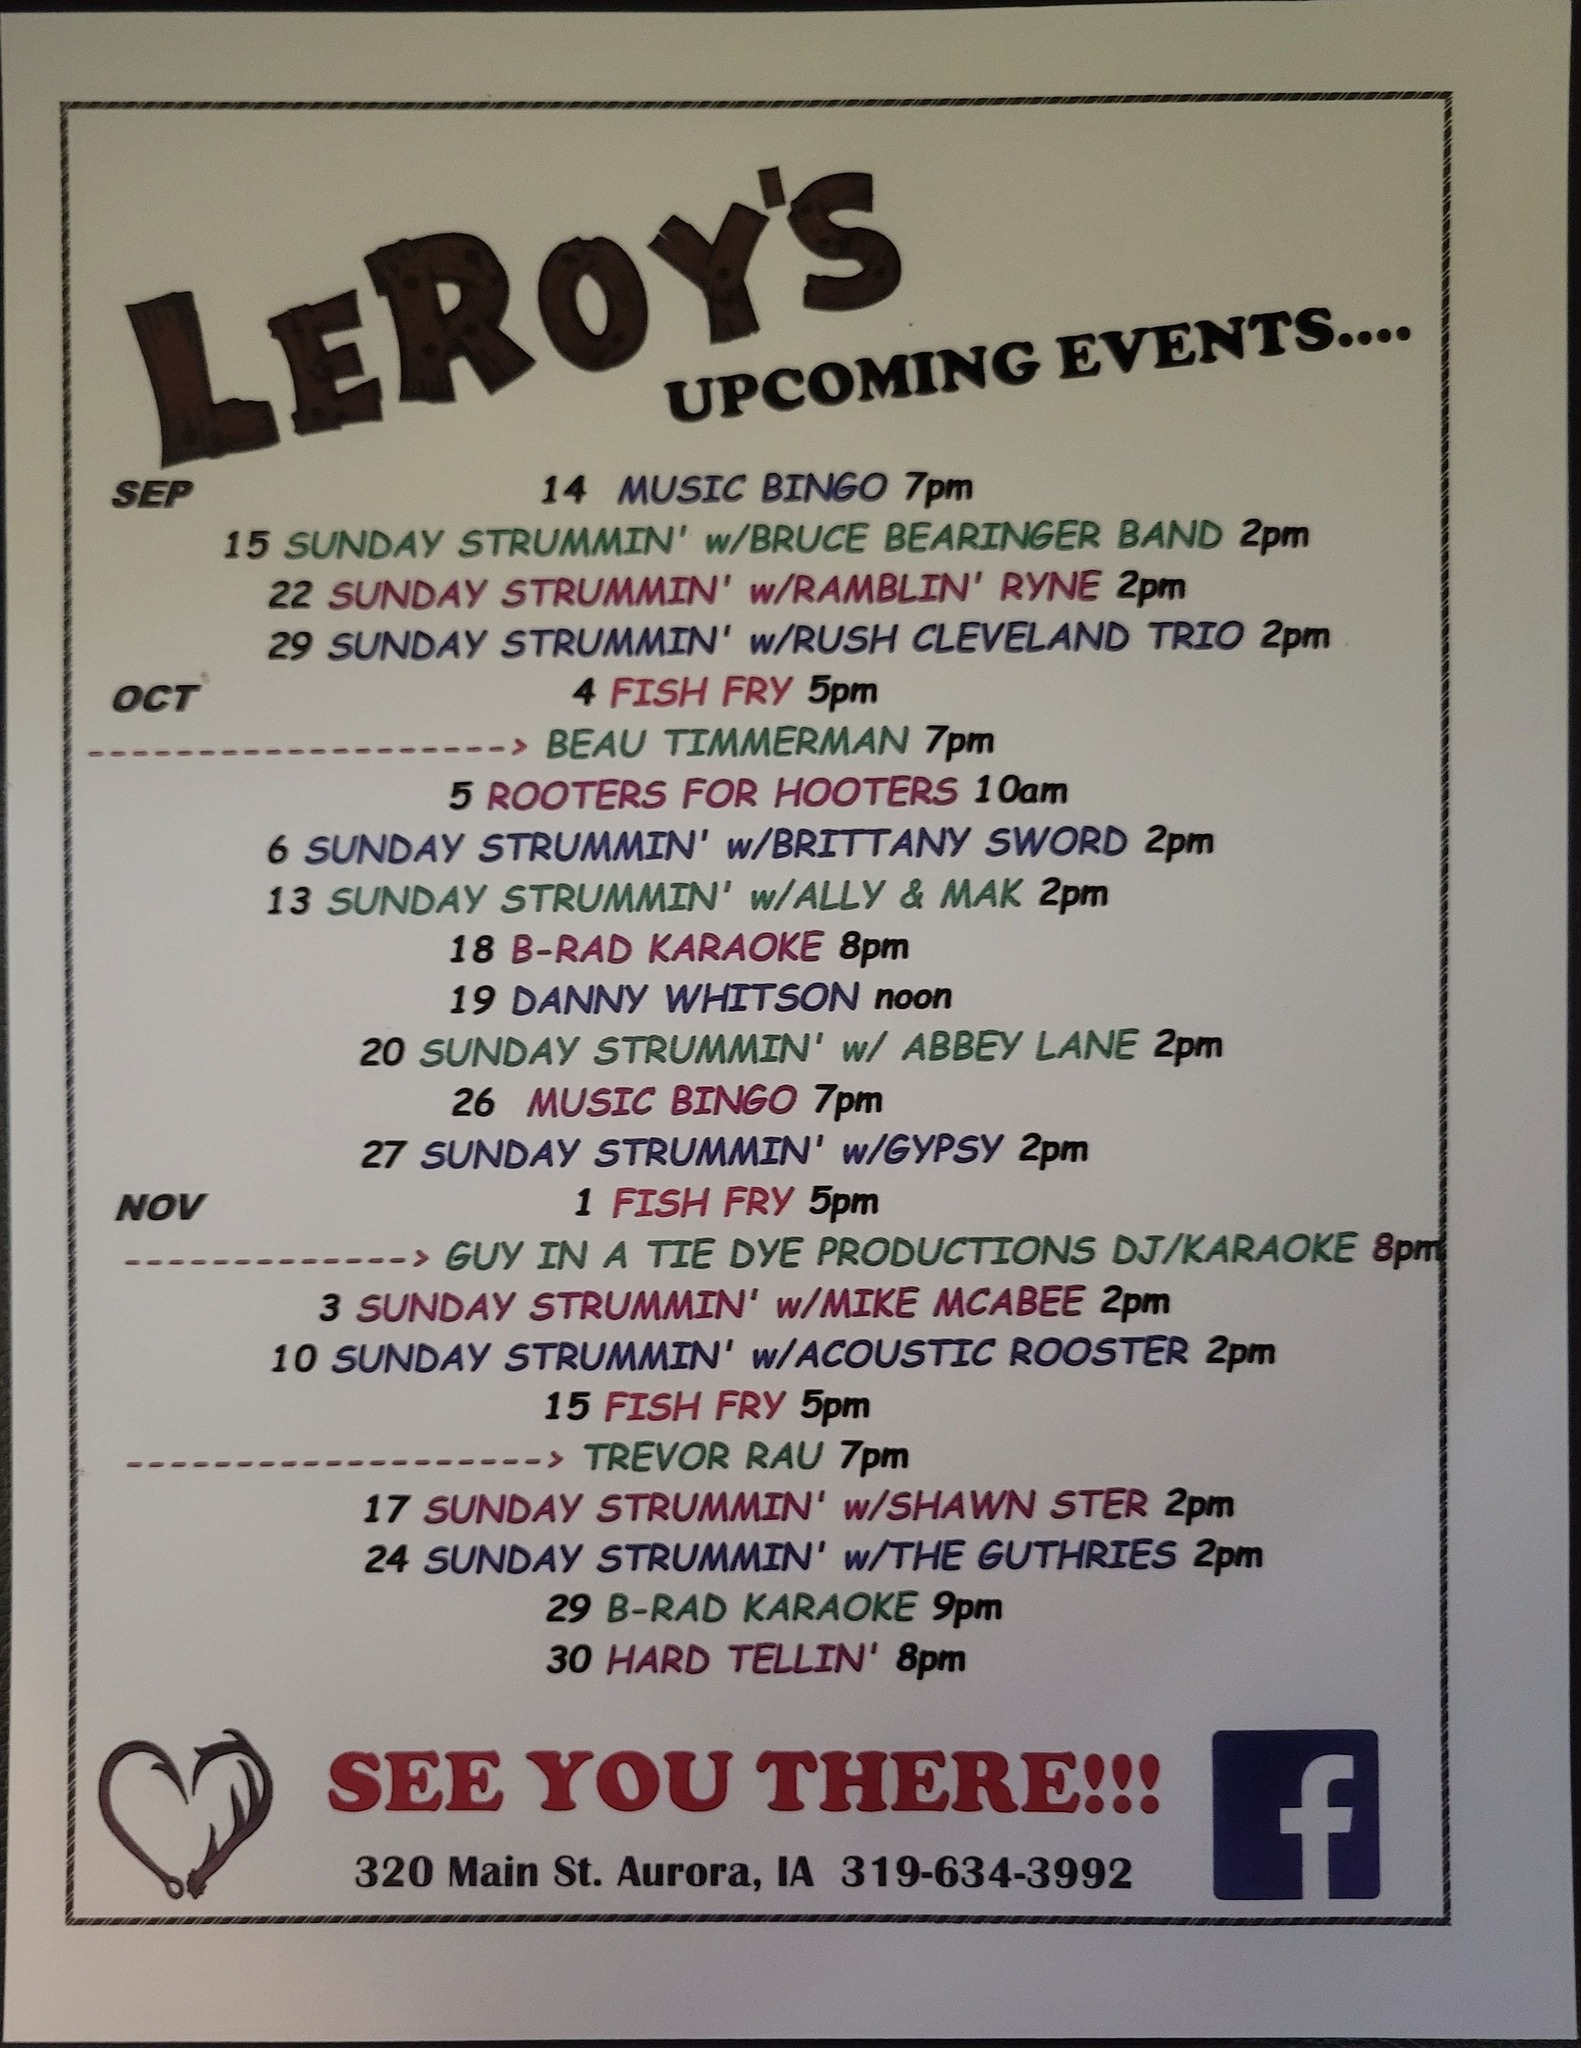 LEROY'S
UPCOMING EVENTS....
SEP 14 MUSIC BINGO 7pm
15 SUNDAY STRUMMIN' w/BRUCE BEARINGER BAND 2pm
22 SUNDAY STRUMMIN' w/RAMBLIN' RYNE 2pm
29 SUNDAY STRUMMIN' w/RUSH CLEVELAND TRIO 2pm
OCT 4 FISH FRY 5pm
-------------------> BEAU TIMMERMAN 7pm
5 ROOTERS FOR HOOTERS 10am
6 SUNDAY STRUMMIN' w/BRITTANY SWORD 2pm
13 SUNDAY STRUMMIN' w/ALLY & MAK 2pm
18 B-RAD KARAOKE 8pm
19 DANNY WHITSON noon
20 SUNDAY STRUMMIN' w/ ABBEY LANE 2pm
26 MUSIC BINGO 7pm
27 SUNDAY STRUMMIN' w/GYPSY 2pm
NOV 1 FISH FRY 5pm
-------------> GUY IN A TIE DYE PRODUCTIONS DJ/KARAOKE 8pm
3 SUNDAY STRUMMIN' w/MIKE MCABEE 2pm
10 SUNDAY STRUMMIN' w/ACOUSTIC ROOSTER 2pm
15 FISH FRY 5pm
-------------------> TREVOR RAU 7pm
17 SUNDAY STRUMMIN' w/SHAWN STER 2pm
24 SUNDAY STRUMMIN' w/THE GUTHRIES 2pm
29 B-RAD KARAOKE 9pm
30 HARD TELLIN' 8pm
SEE YOU THERE!!!
f
320 Main St. Aurora, IA 319-634-3992